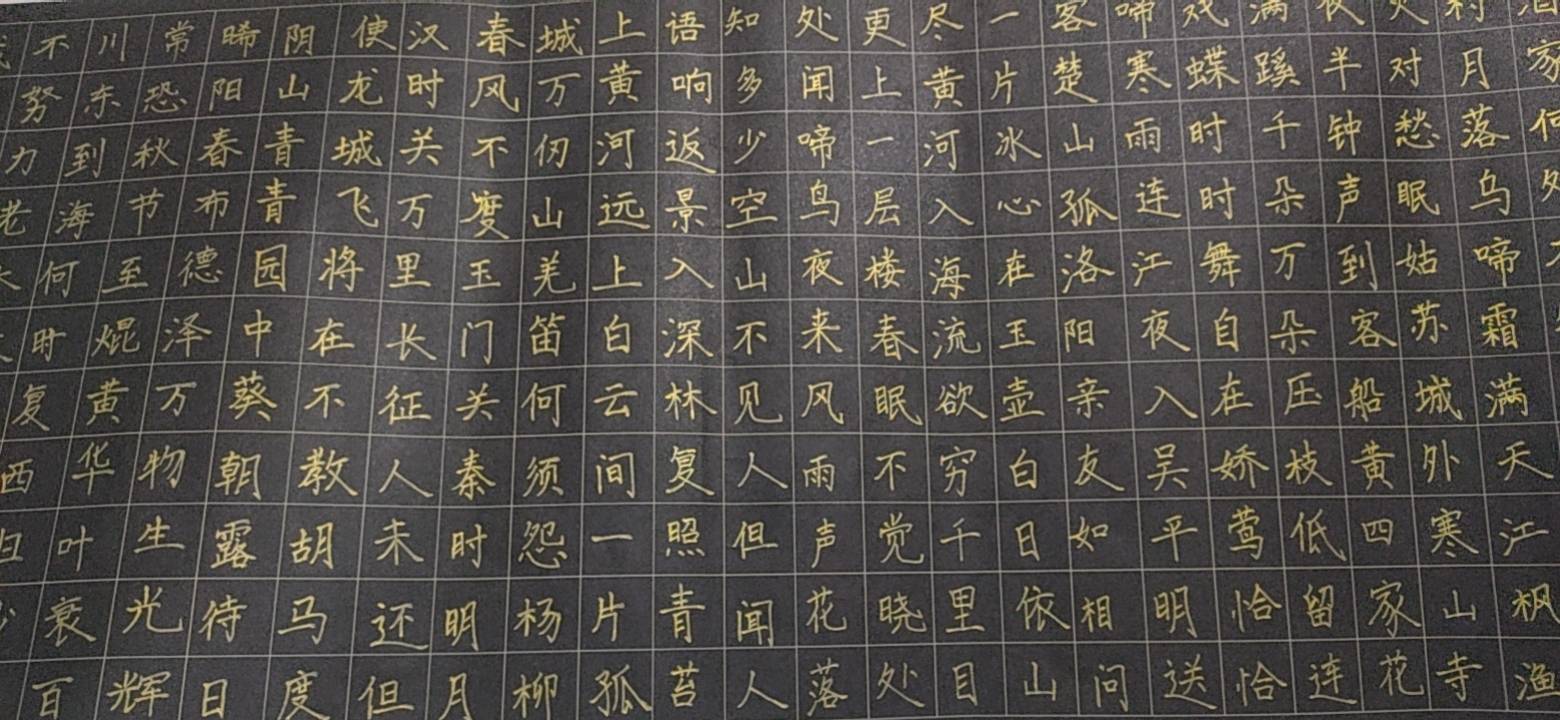 酒家何处
村月落乌啼霜满天江枫渔
火对愁眠姑苏城外寒山寺
夜半钟声到客船黄四家花
满蹊千朵万朵压枝低留连
戏蝶时时舞自在娇莺恰恰
啼寒雨连江夜入吴平明送
客楚山孤洛阳亲友如相问
一片冰心在玉壶白日依山
尽黄河入海流欲穷千里目
更上一层楼春眠不觉晓处
处闻啼鸟夜来风雨声花落
知多少空山不见人但闻人
语响返景入深林复照青苔
上黄河远上白云间一片孤
城万仞山羌笛何须怨杨柳
春风不度玉门关秦时明月
汉时关万里长征人未还但
使龙城飞将在不教胡马度
阴山青青园中葵朝露待日
晞阳春布德泽万物生光辉
常恐秋节至焜黄华叶衰百
川东到海何时复西归少
不努力老